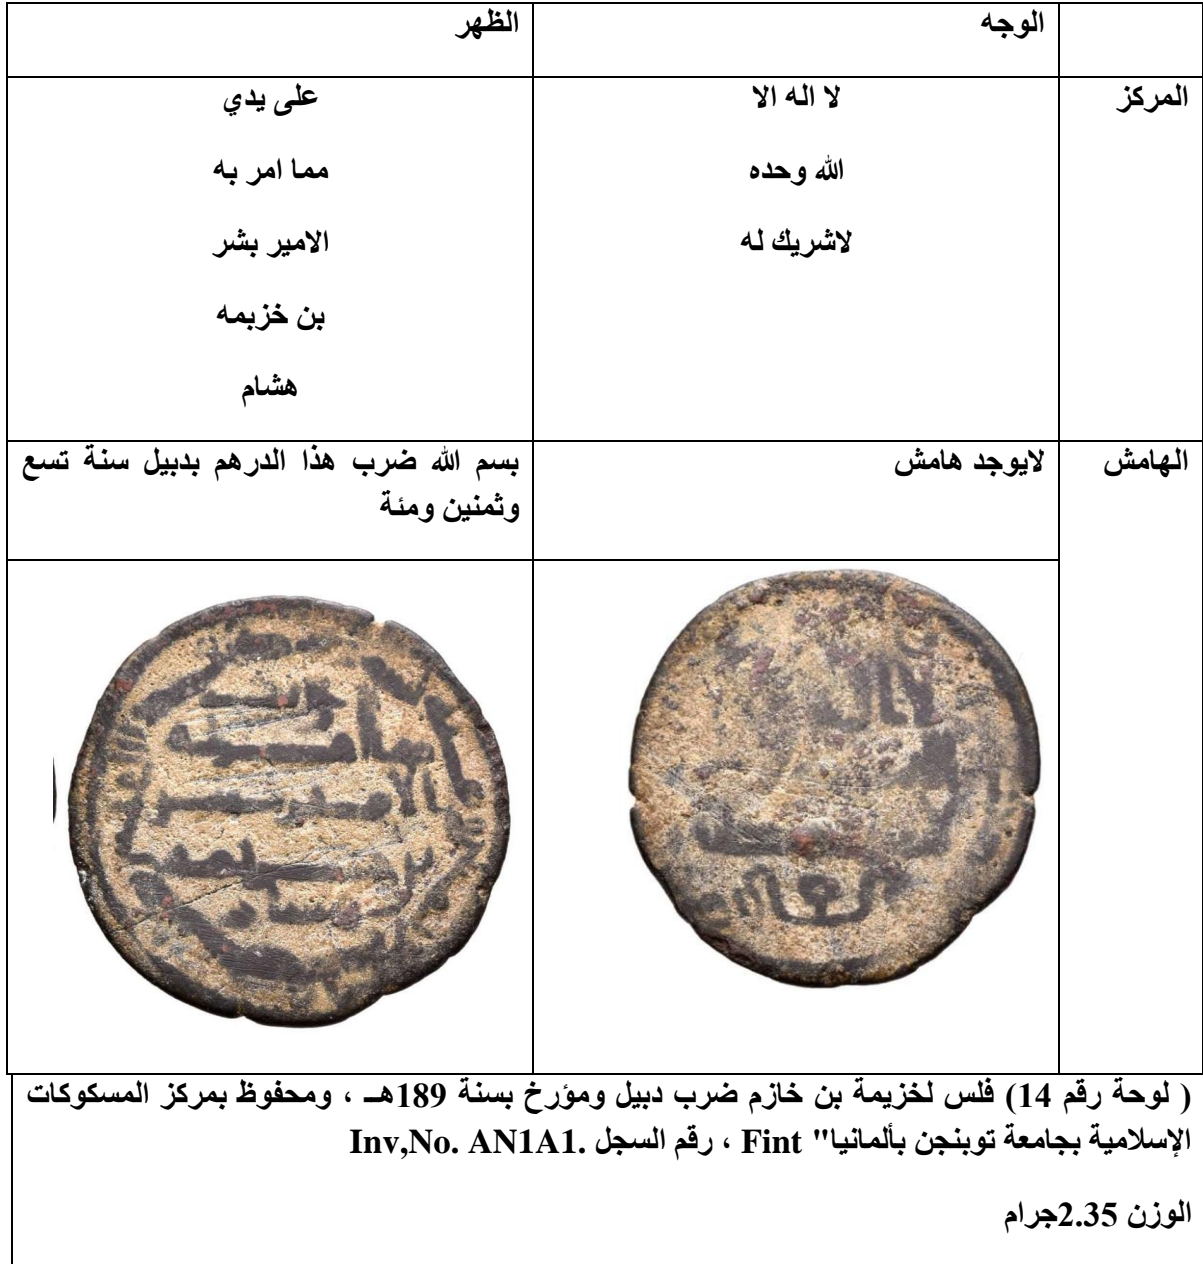 الوجه
الظهر
المركز
لا اله الا
الله وحده
لاشريك له
على يدي
مما امر به
الامير بشر
بن خزبمه
هشام
الهامش
لايوجد هامش
بسم الله ضرب هذا الدرهم بدبيل سنة تسع
وثمنين ومئة
( لوحة رقم 14) فلس لخزيمة بن خازم ضرب دبيل ومؤرخ بسنة 189هــ ، ومحفوظ بمركز المسكوكات
الإسلامية بجامعة توبنجن بألمانيا" Fint ، رقم السجل .Inv,No. AN1A1
الوزن 2.35جرام